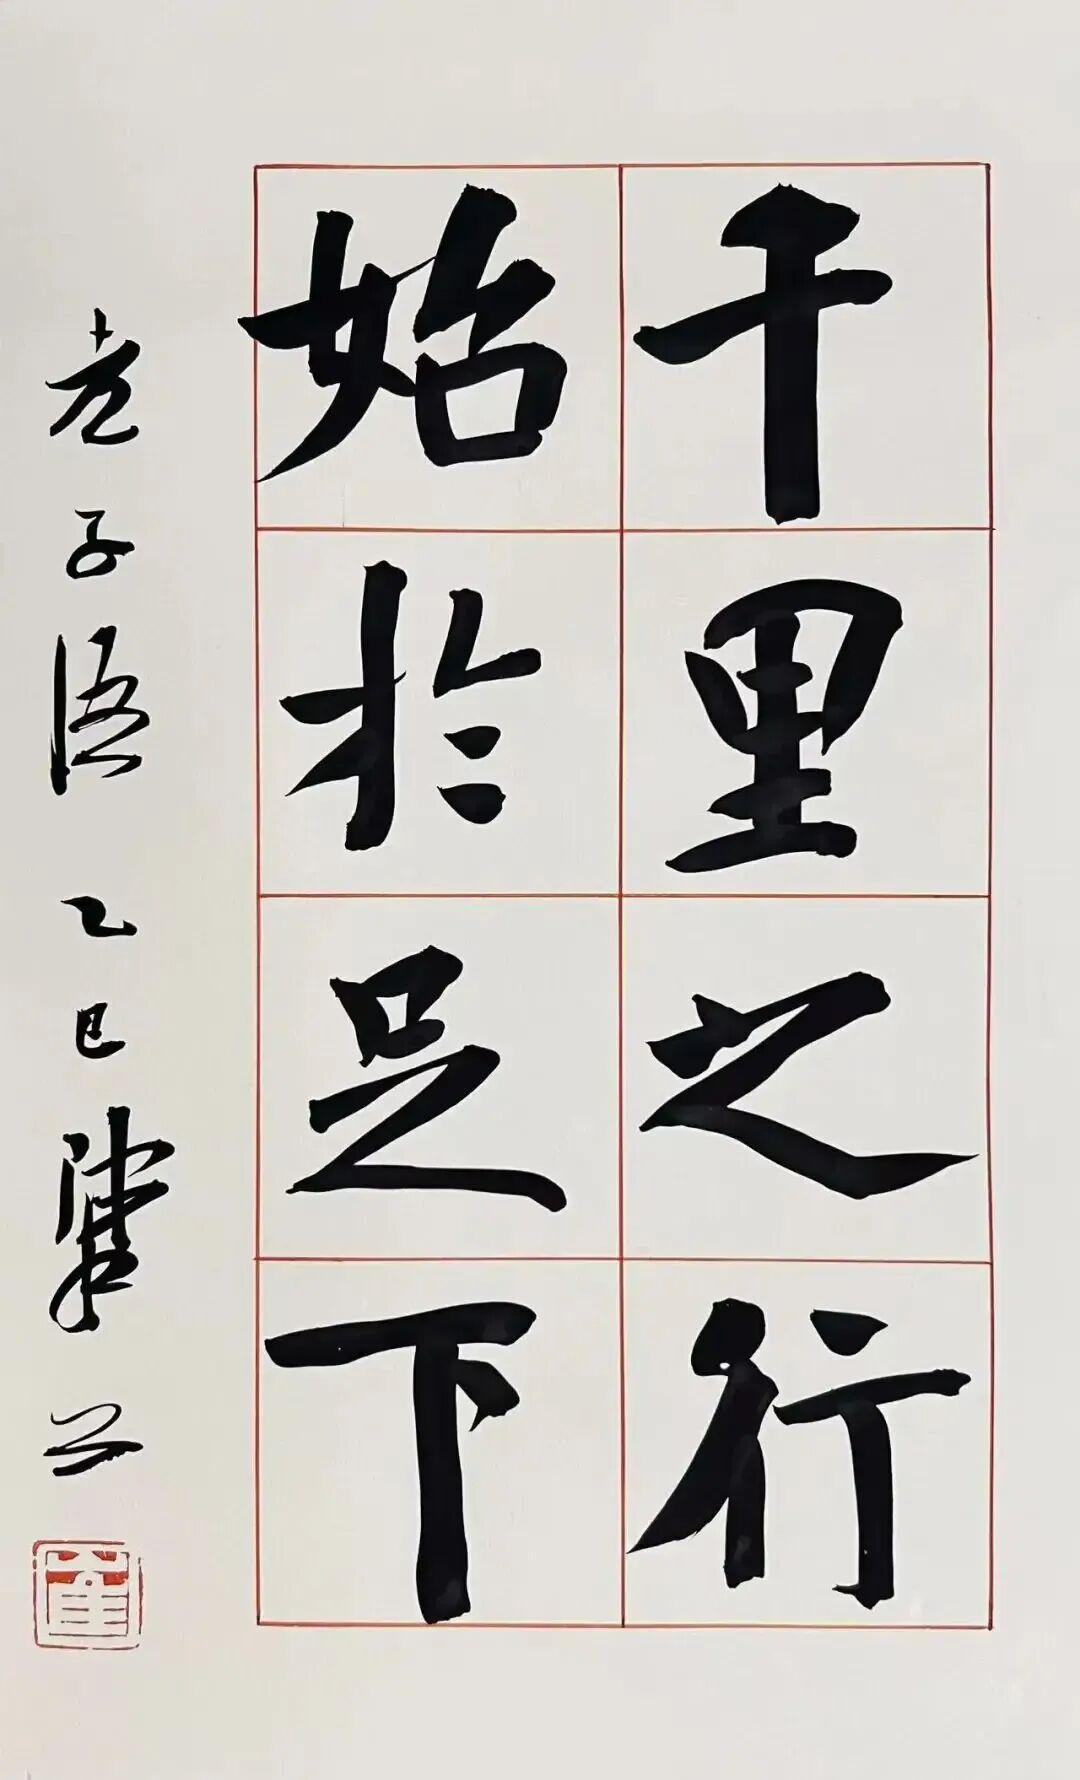 千里之行
始於足下
老子语 乙巳